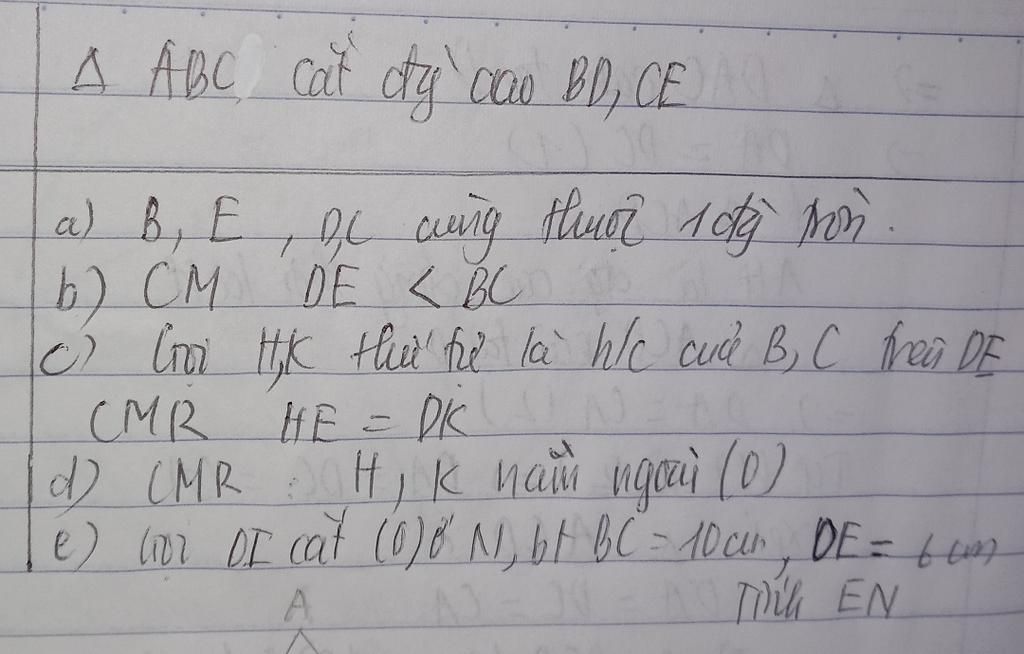 Δ ABC cắt đg cao BD, CE
a) B, E, D, C cùng thuộc 1 đg tròn.
b) CM DE < BC
c) Gọi H, K thứ tự là h/c của B, C trên DE
CMR HE = DK
d) CMR : H, K nằm ngoài (O)
e) Gọi DI cắt (O) ở N, bt BC = 10 cm, DE = 6 cm
Tính EN
A